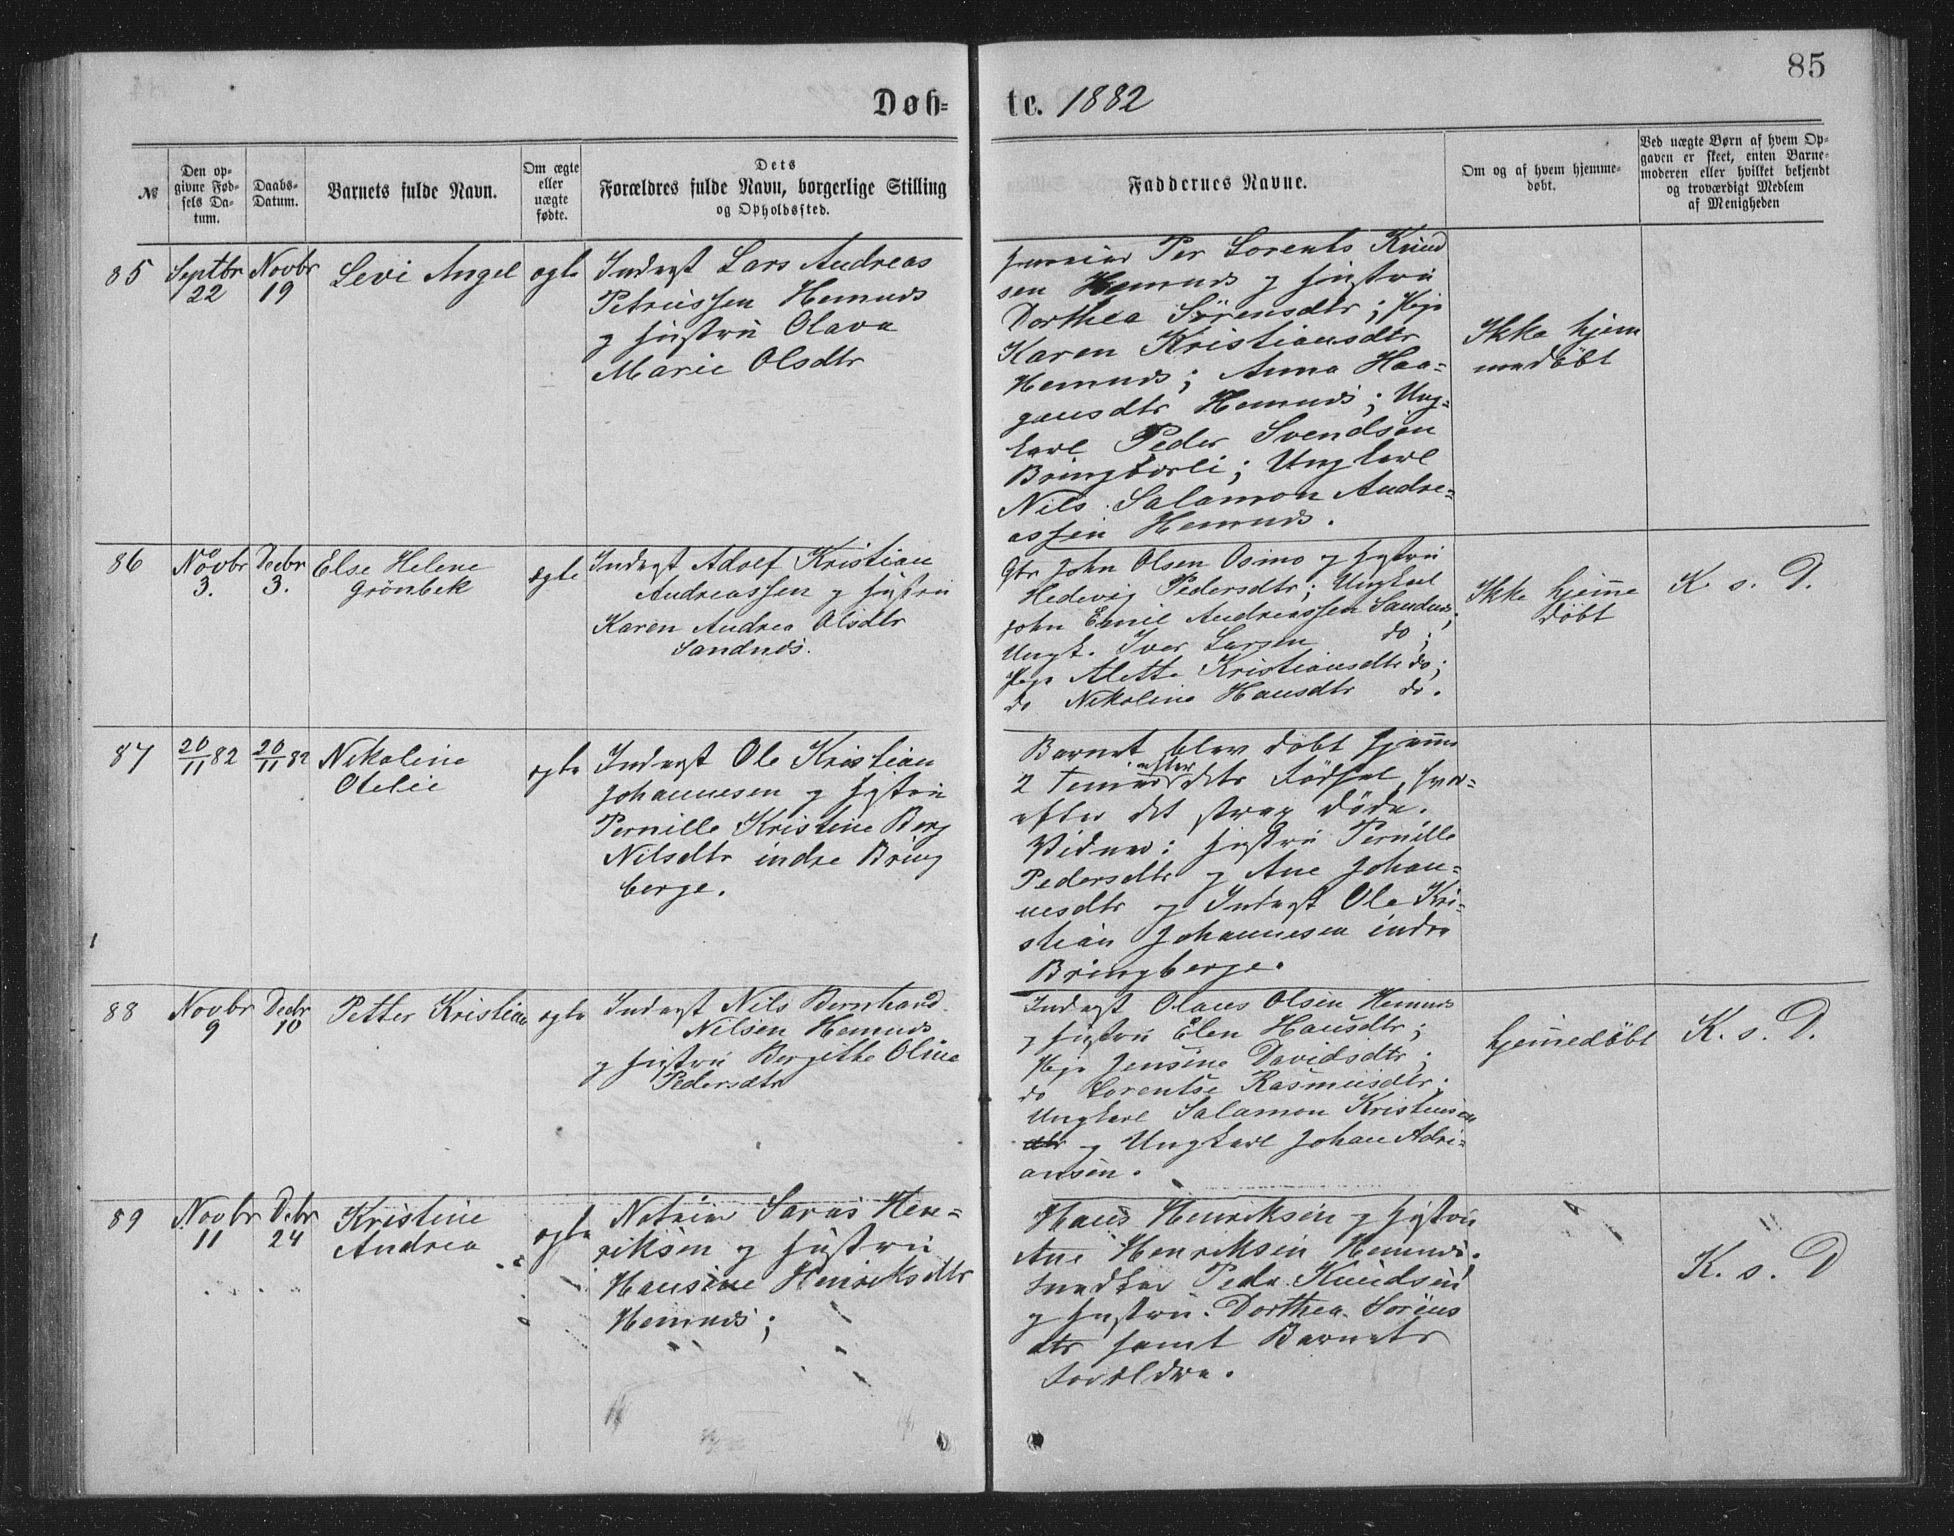 85
Døb- te. 1882
№
Den op-
givne Fød-
sels Da-
tum.
Daabs-
Datum.
Barnets fulde Navn.
Om ægte
eller
uægte
fødte.
Dets
Forældres fulde Navn, borgerlige Stilling
og Opholdssted.
Faddernes Navne.
Om og af hvem hjemme-
døbt.
Ved uægte Børn af hvem Op-
gaven er skeet, enten Barne-
moderen eller hvilket bekjendt
og troværdigt Medlem
af Menigheden
85
Septbr
22
Novbr
19
Levi Angel
ægte
Inderst Lars Andreas
Petrussen Hemnes
og Hustru Olava
Marie Olsdtr
Per Lorents Knud
sen Hemnes og Hustru
Dorthea Sørensdtr; Pige
Karen Kristiansdtr
Hemnes; Anna Haa-
gensdtr Hemnes; Ung-
karl Peder Svendsen
Bringborli; Ungkarl
Nils Salamon Andre-
assen Hemnes.
Ikke hjem
medøbt
86
Novbr
3.
Decbr
3.
Else Helene
Grönbek
ægte
Inderst Adolf Kristian
Andreassen og Hustru
Karen Andrea Olsdtr
Sandnes.
Gbr John Olsen Osmo og Hustru
Hedevig Pedersdtr; Ungkarl
John Emil Andreassen Sandnes;
Ungk. Iver Larsen do;
Pige Alette Kristiansdtr do;
do Nikoline Hansdtr do.
Ikke hjemme
døbt
K. s. D.
87
20/11 82
20/11 82
Nikoline
Otelie
ægte
Inderst Ole Kristian
Johannesen og Hustru
Pernille Kristine Berg
Nilsdtr indre Bring
berge.
Barnet blev døbt hjemme
2 Timer efter dets Fødsel, hvor-
efter det strax døde.
Vidner: Hustru Pernille
Pedersdtr og Ane Johan-
nesdtr og Inderst Ole Kri-
stian Johannesen indre
Bringberge.
88
Novbr
9
Decbr
10
Petter Kristian
ægte
Inderst Nils Bernhard
Nilsen Hemnes
og Hustru Bergithe Oline
Pedersdtr
Inderst Olaus Olsen Hemnes
og Hustru Elen Hansdtr;
Pige Jensine Davidsdtr;
do Lorentse Rasmusdtr;
Ungkarl Salamon Kristensen
og Ungkarl Johan Adri-
ansen.
hjemmedøbt
K. s. D.
89
Novbr
11
Debr
24
Kristine
Andrea
ægte
Sarus Hen-
riksen og Hustru
Hansine Henriksdtr
Hemnes;
Hans Henriksen og Hustru
Ane Henriksen Hemnes;
Peder Knudsen
og Hustru Dorthea Sörens
dtr samt Barnets
Forældre.
K. s. D